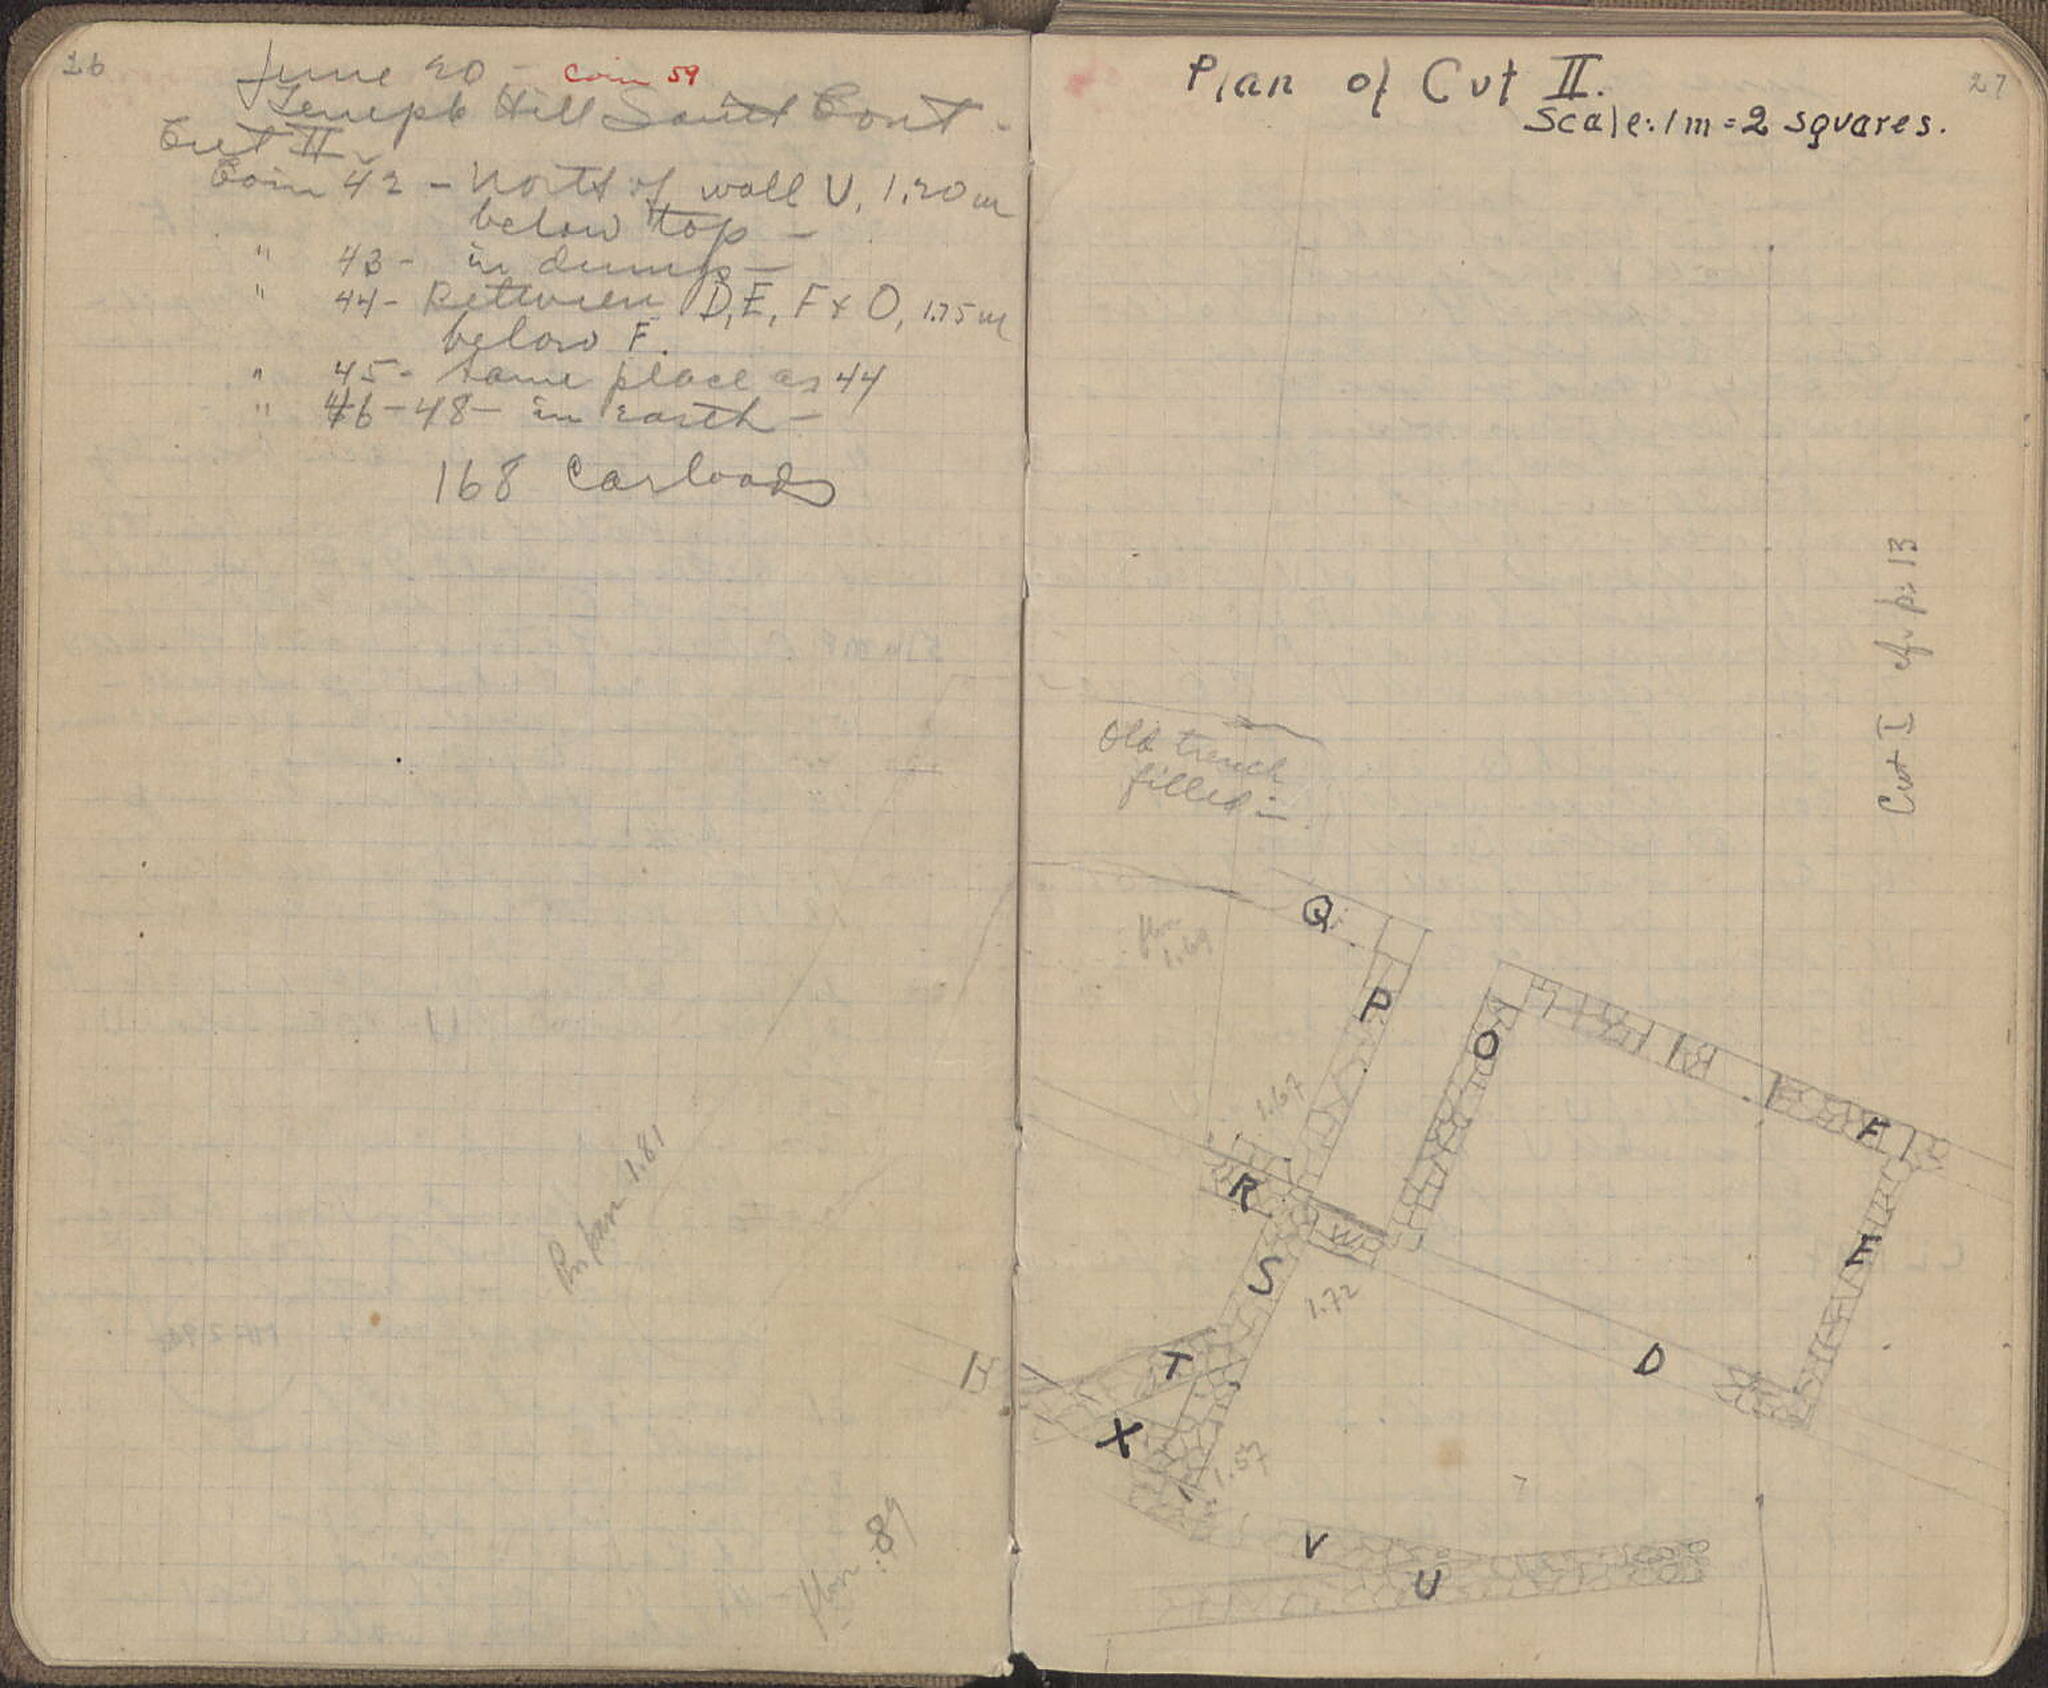 26
June 20 - Coin 59
Temple Hill South Cont -
Cut II -
Coin 42 - North of wall U, 1.20 m
below top -
" 43 - in dump -
" 44 - Between D, E, F & O, 1.75 m
below F.
" 45 - same place as 44
" 46-48 - in earth -
168 Carloads
1.81
.89
27
Plan of Cut II.
Scale: 1 m = 2 squares.
Cut I cf. p. 13
Old trench
filled in
Q
1.69
P
O
F
1.67
R
W
E
S
1.72
T
D
X
1.57
V
U